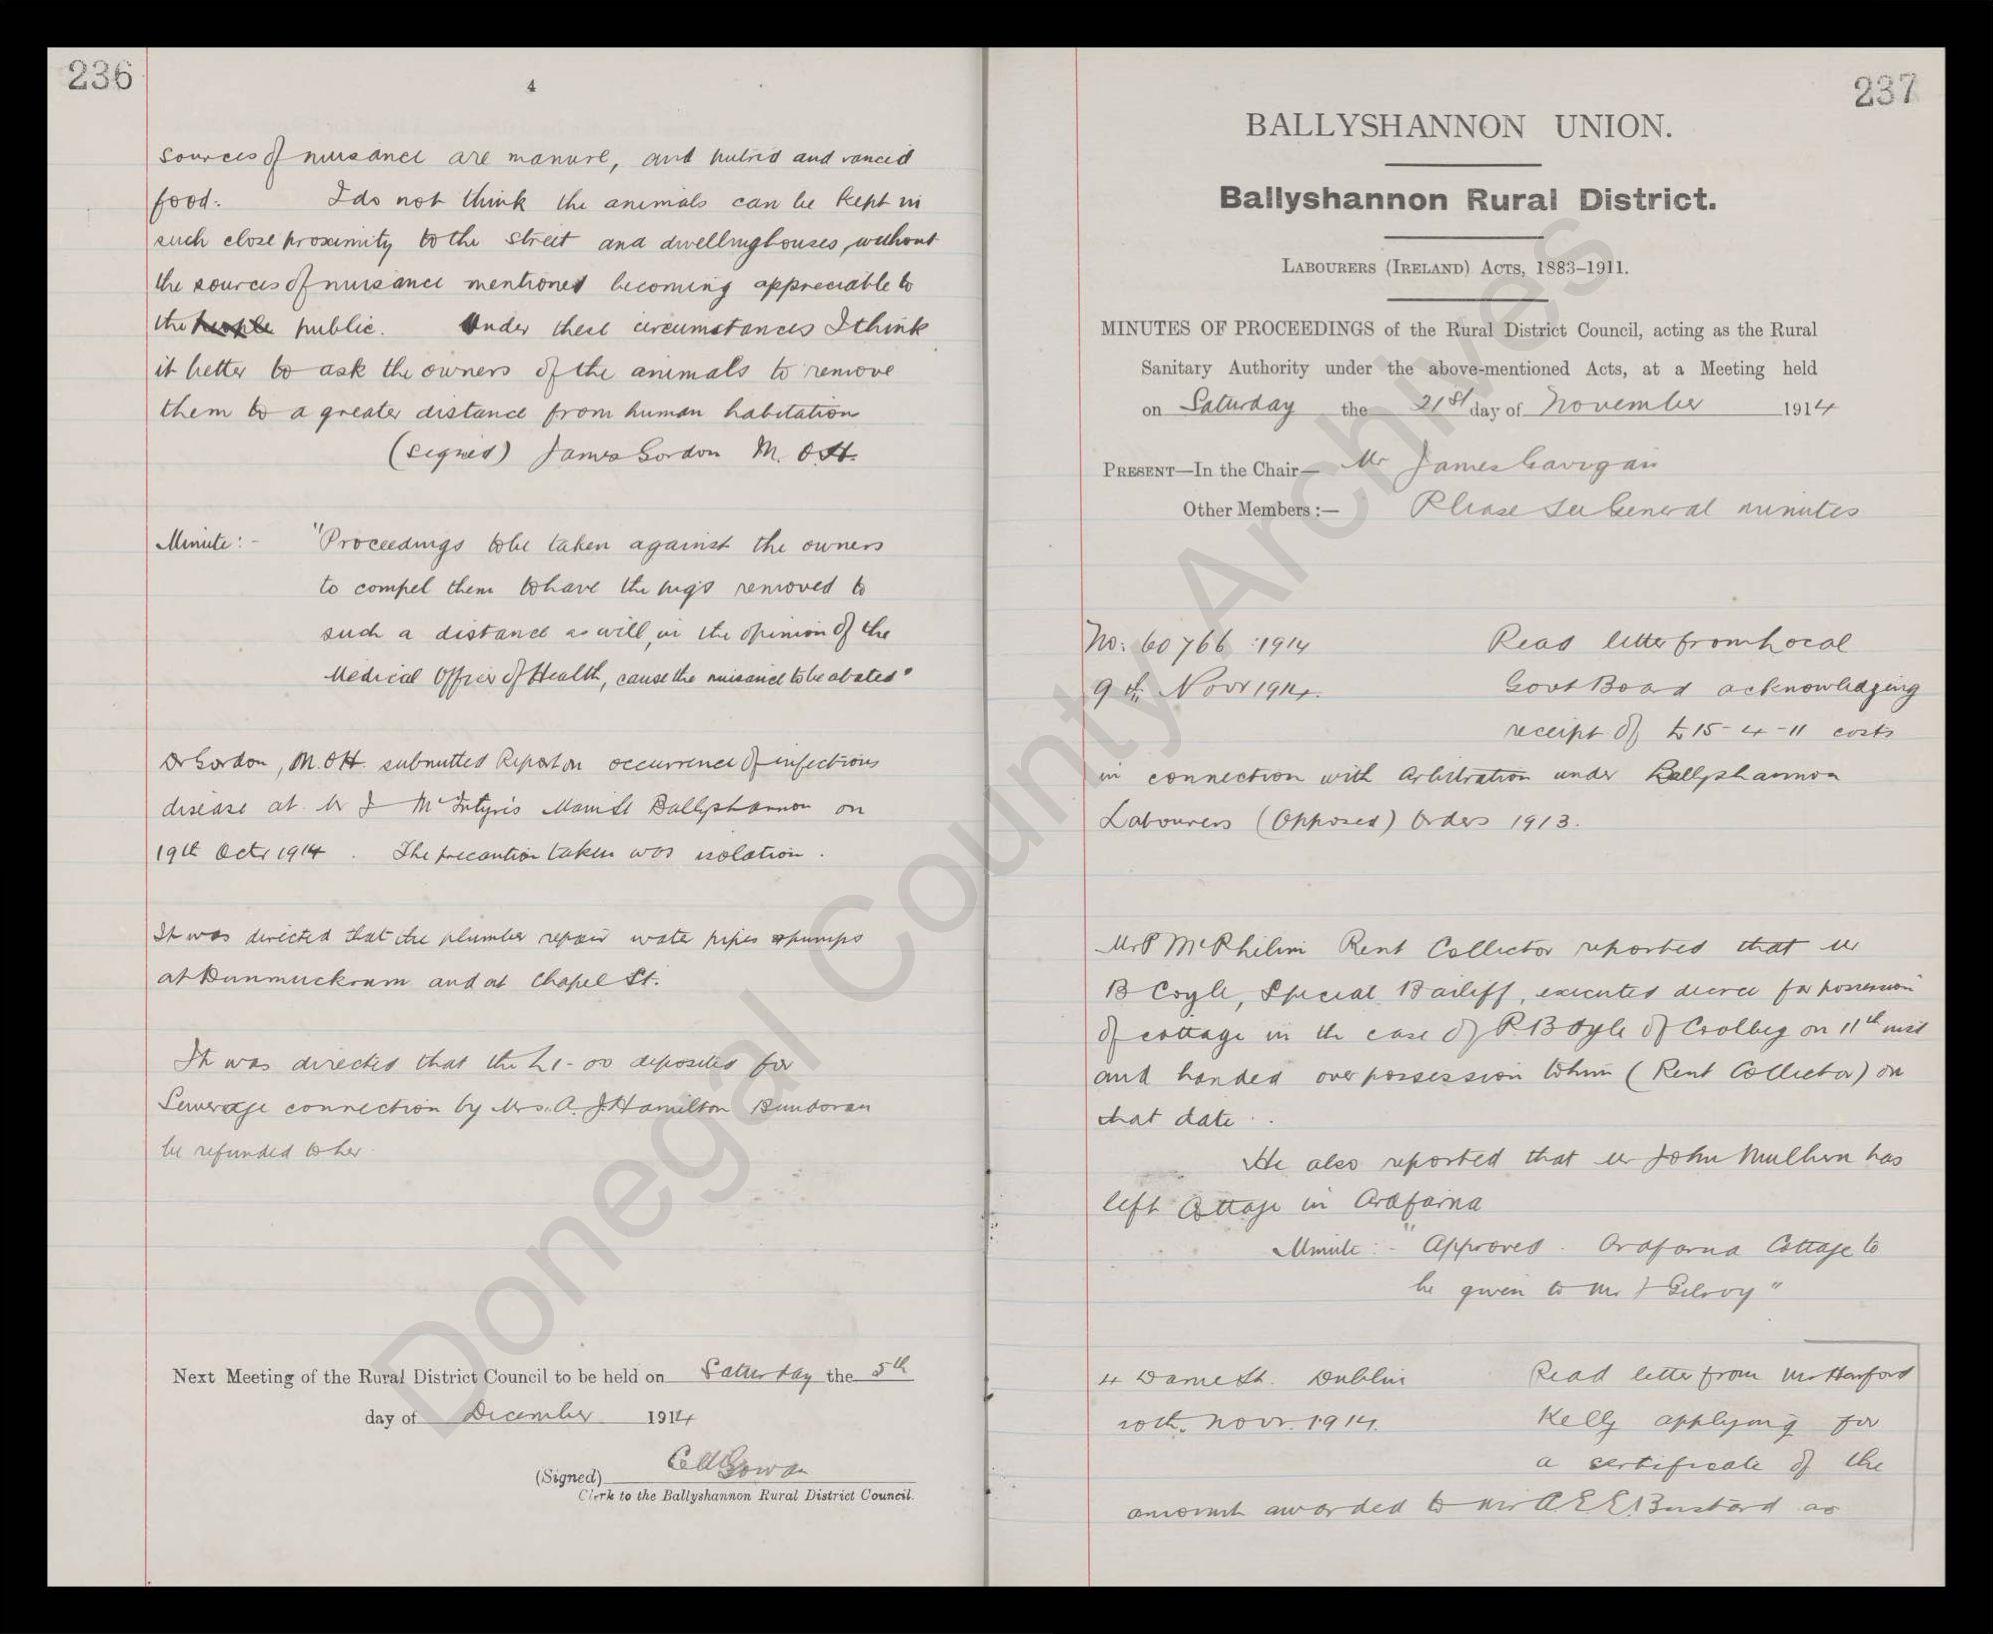 236
4
sources of nuisance are manure, and putrid and rancid
food. I do not think the animals can be kept in
such close proximity to the street and dwellinghouses, without
the sources of nuisance mentioned becoming appreciable to
the people public. Under these circumstances I think
it better to ask the owners of the animals to remove
them to a greater distance from human habitation
(signed) James Gordon M. O.H.
Minute:- "Proceedings to be taken against the owners
to compel them to have the pigs removed to
such a distance as will, in the opinion of the
Medical Officer of Health, cause the nuisance to be abated"
Dr Gordon, M.O.H. submitted Report on occurrence of infectious
disease at Mr J McIntyre's Main St Ballyshannon on
19th Octr 1914. The precaution taken was isolation.
It was directed that the plumber repair water pipes & pumps
at Dunmuckrum and at Chapel St.
It was directed that the £1-0-0 deposited for
Sewerage connection by Mrs. A. J. Hamilton Bundoran
be refunded to her
Next Meeting of the Rural District Council to be held on Saturday the 5th
day of December 1914
(Signed)
Clerk to the Ballyshannon Rural District Council.
237
BALLYSHANNON UNION.
Ballyshannon Rural District.
LABOURERS (IRELAND) ACTS, 1883–1911.
MINUTES OF PROCEEDINGS of the Rural District Council, acting as the Rural
Sanitary Authority under the above-mentioned Acts, at a Meeting held
on Saturday the 21st day of November 1914
PRESENT—In the Chair— Mr James Gavigan
Other Members :— Please see General minutes
No: 60766 :1914 Read letter from Local
9th Novr 1914. Govt Board acknowledging
receipt of £15-4-11 costs
in connection with Arbitration under Ballyshannon
Labourers (Opposed) Orders 1913.
Mr P McPhilim Rent Collector reported that Mr
B Coyle, Special Bailiff, executed decree for possession
of cottage in the case of P. Boyle of Coolbeg on 11th inst
and handed over possession to him (Rent Collector) on
that date.
He also reported that Mr John Mulhern has
left Cottage in Ardfarna
Minute:- "Approved. Ardfarna Cottage to
be given to Mr J Gilroy"
4 Dame St. Dublin Read letter from Mr Harford
10th. Novr. 1914. Kelly applying for
a certificate of the
amount awarded to Mr A E E. Bustard as
Donegal County Archives